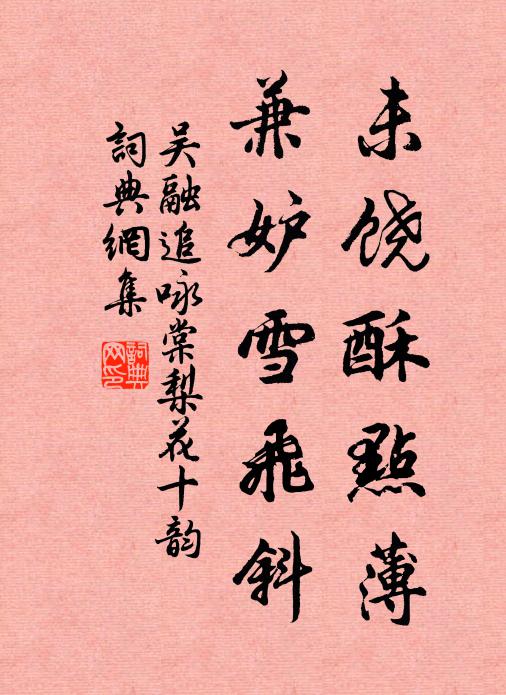 未饶酥點薄
兼妒雪飛斜
吴融追咏棠梨花十韵
詞典網集
詞典網印